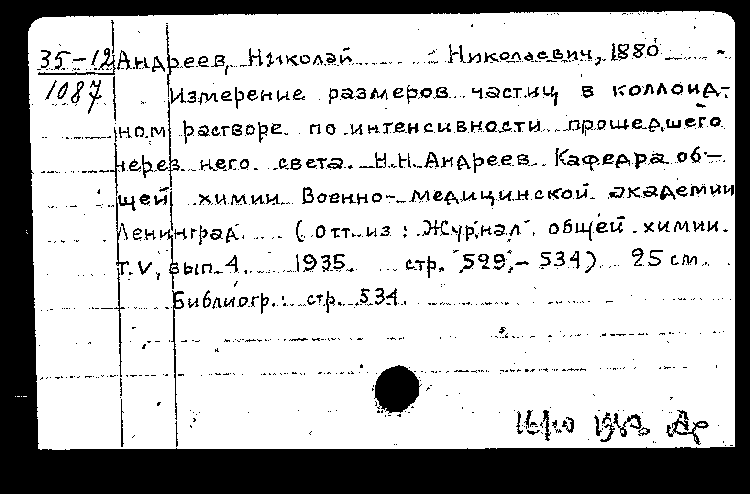 35-12 Андреев, Николай Николаевич, 1880 -
1087 Измерение размеров частиц в коллоид-
ном растворе по интенсивности прошедшего
через него света. Н.Н. Андреев Кафедра об-
щей химии Военно-медицинской академии
Ленинград. (Отт. из: Журнал общей химии.
т. V, вып. 4. 1935. стр. 529-534) 25 см.
Библиогр.: стр. 534.